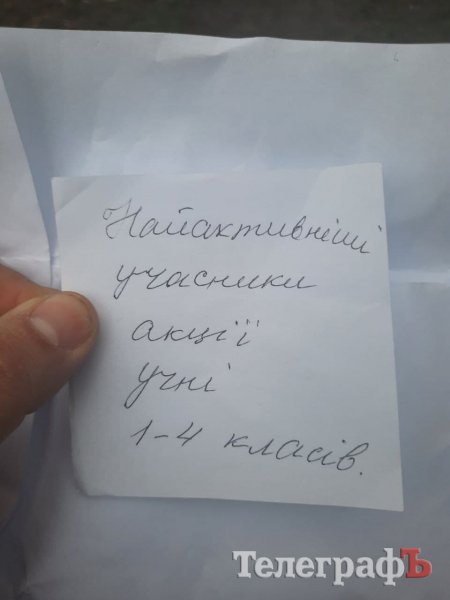 Найактивніші
учасники
акції
учні
1-4 класів.
ТелеграфЪ